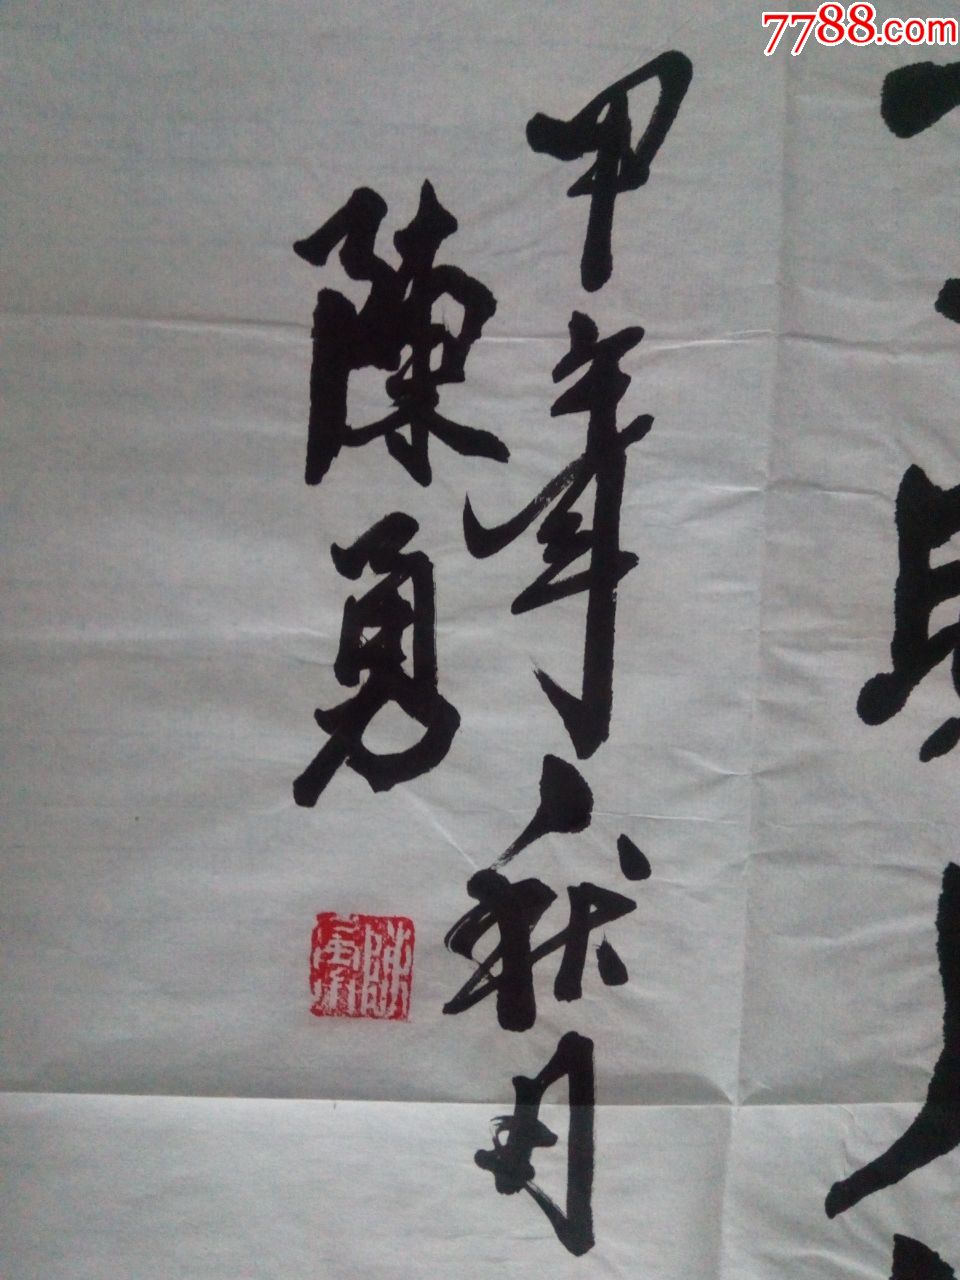 7788.com
甲午年秋月
陳勇